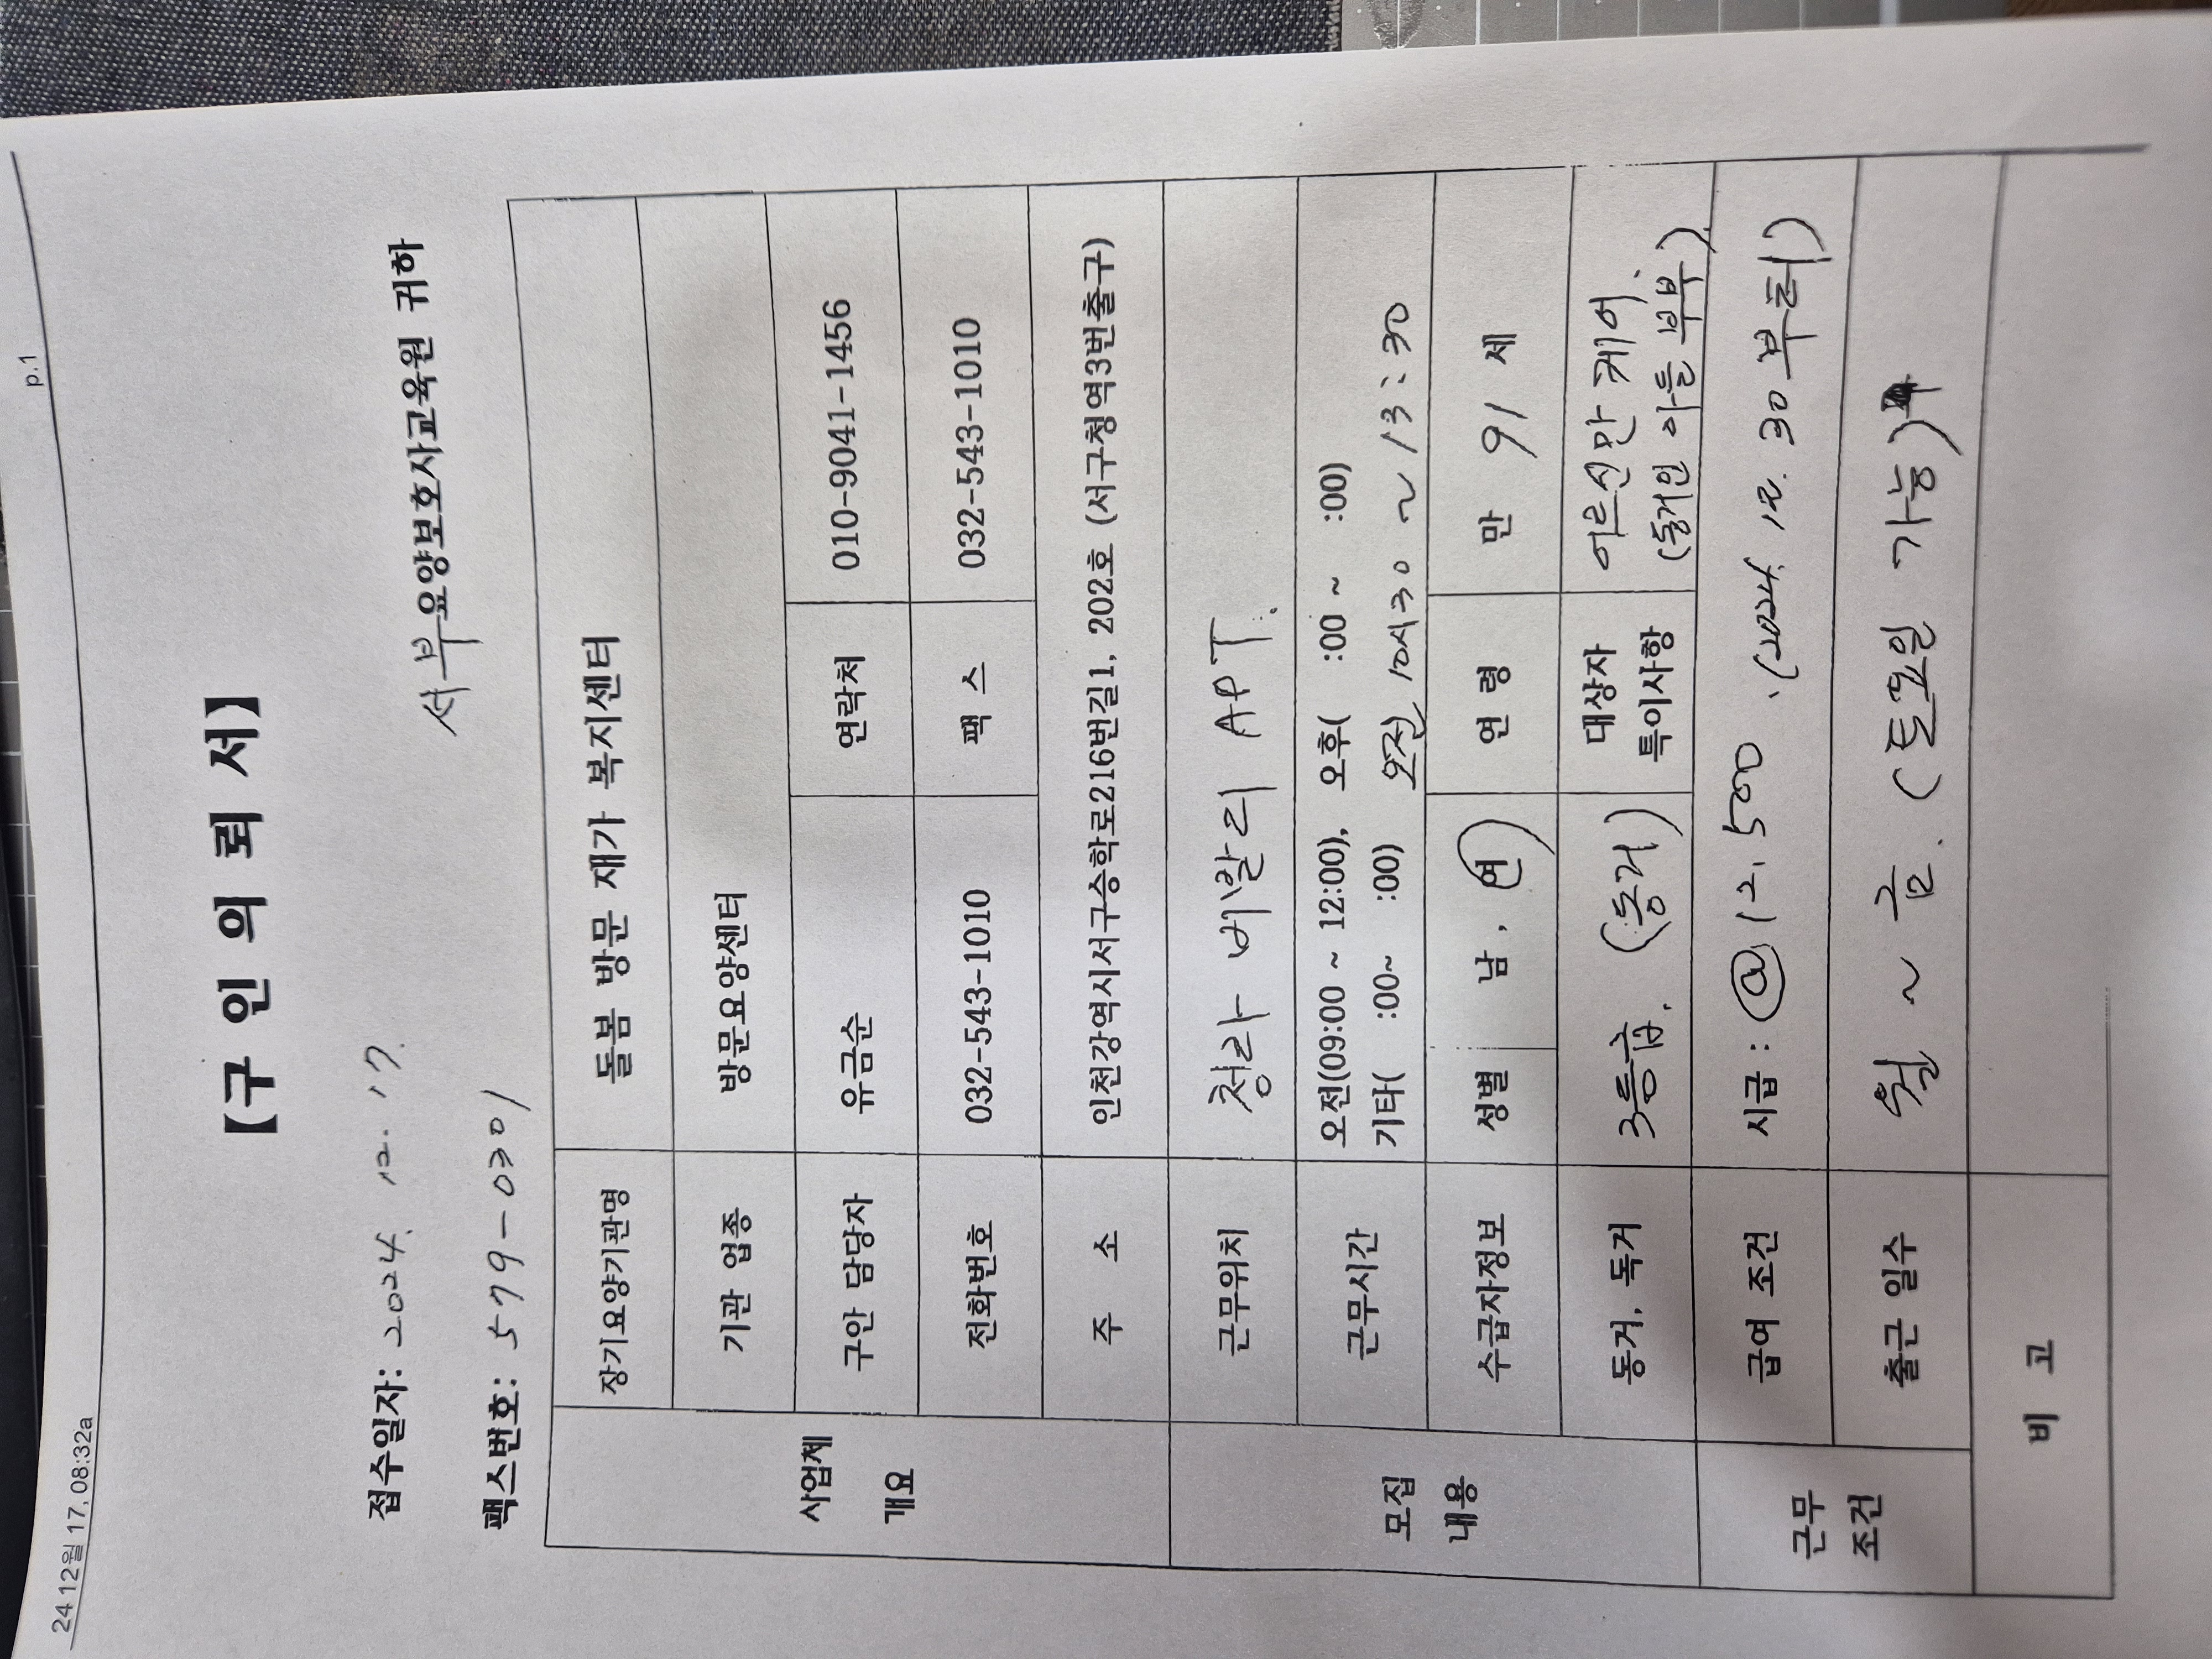 24 12월 17, 08:32a p.1
【구 인 의 뢰 서】
접수일자: 2024. 12. 17.
서부요양보호사교육원 귀하
팩스번호: 579-0301
사업체 개요
장기요양기관명 돌봄 방문 재가 복지센터
기관 업종 방문요양센터
구안 담당자 유금순 연락처 010-9041-1456
전화번호 032-543-1010 팩 스 032-543-1010
주 소 인천강역시서구승학로216번길1, 202호 (서구청역3번출구)
모집 내용
근무위치 청라 베알리 APT.
근무시간 오전(09:00 ~ 12:00), 오후( :00 ~ :00)
기타( :00~ :00) 오전 10시30 ~ 13:30
수급자정보 성별 남, 여 연 령 만 91 세
동거, 독거 3등급. (동거) 대상자 특이사항 어르신만 케어.
(동거인 아들 부부).
근무 조건
급여 조건 시급: @12,500 .(2024. 12. 30부터)
출근 일수 월 ~ 금. (토요일 가능)
비 고